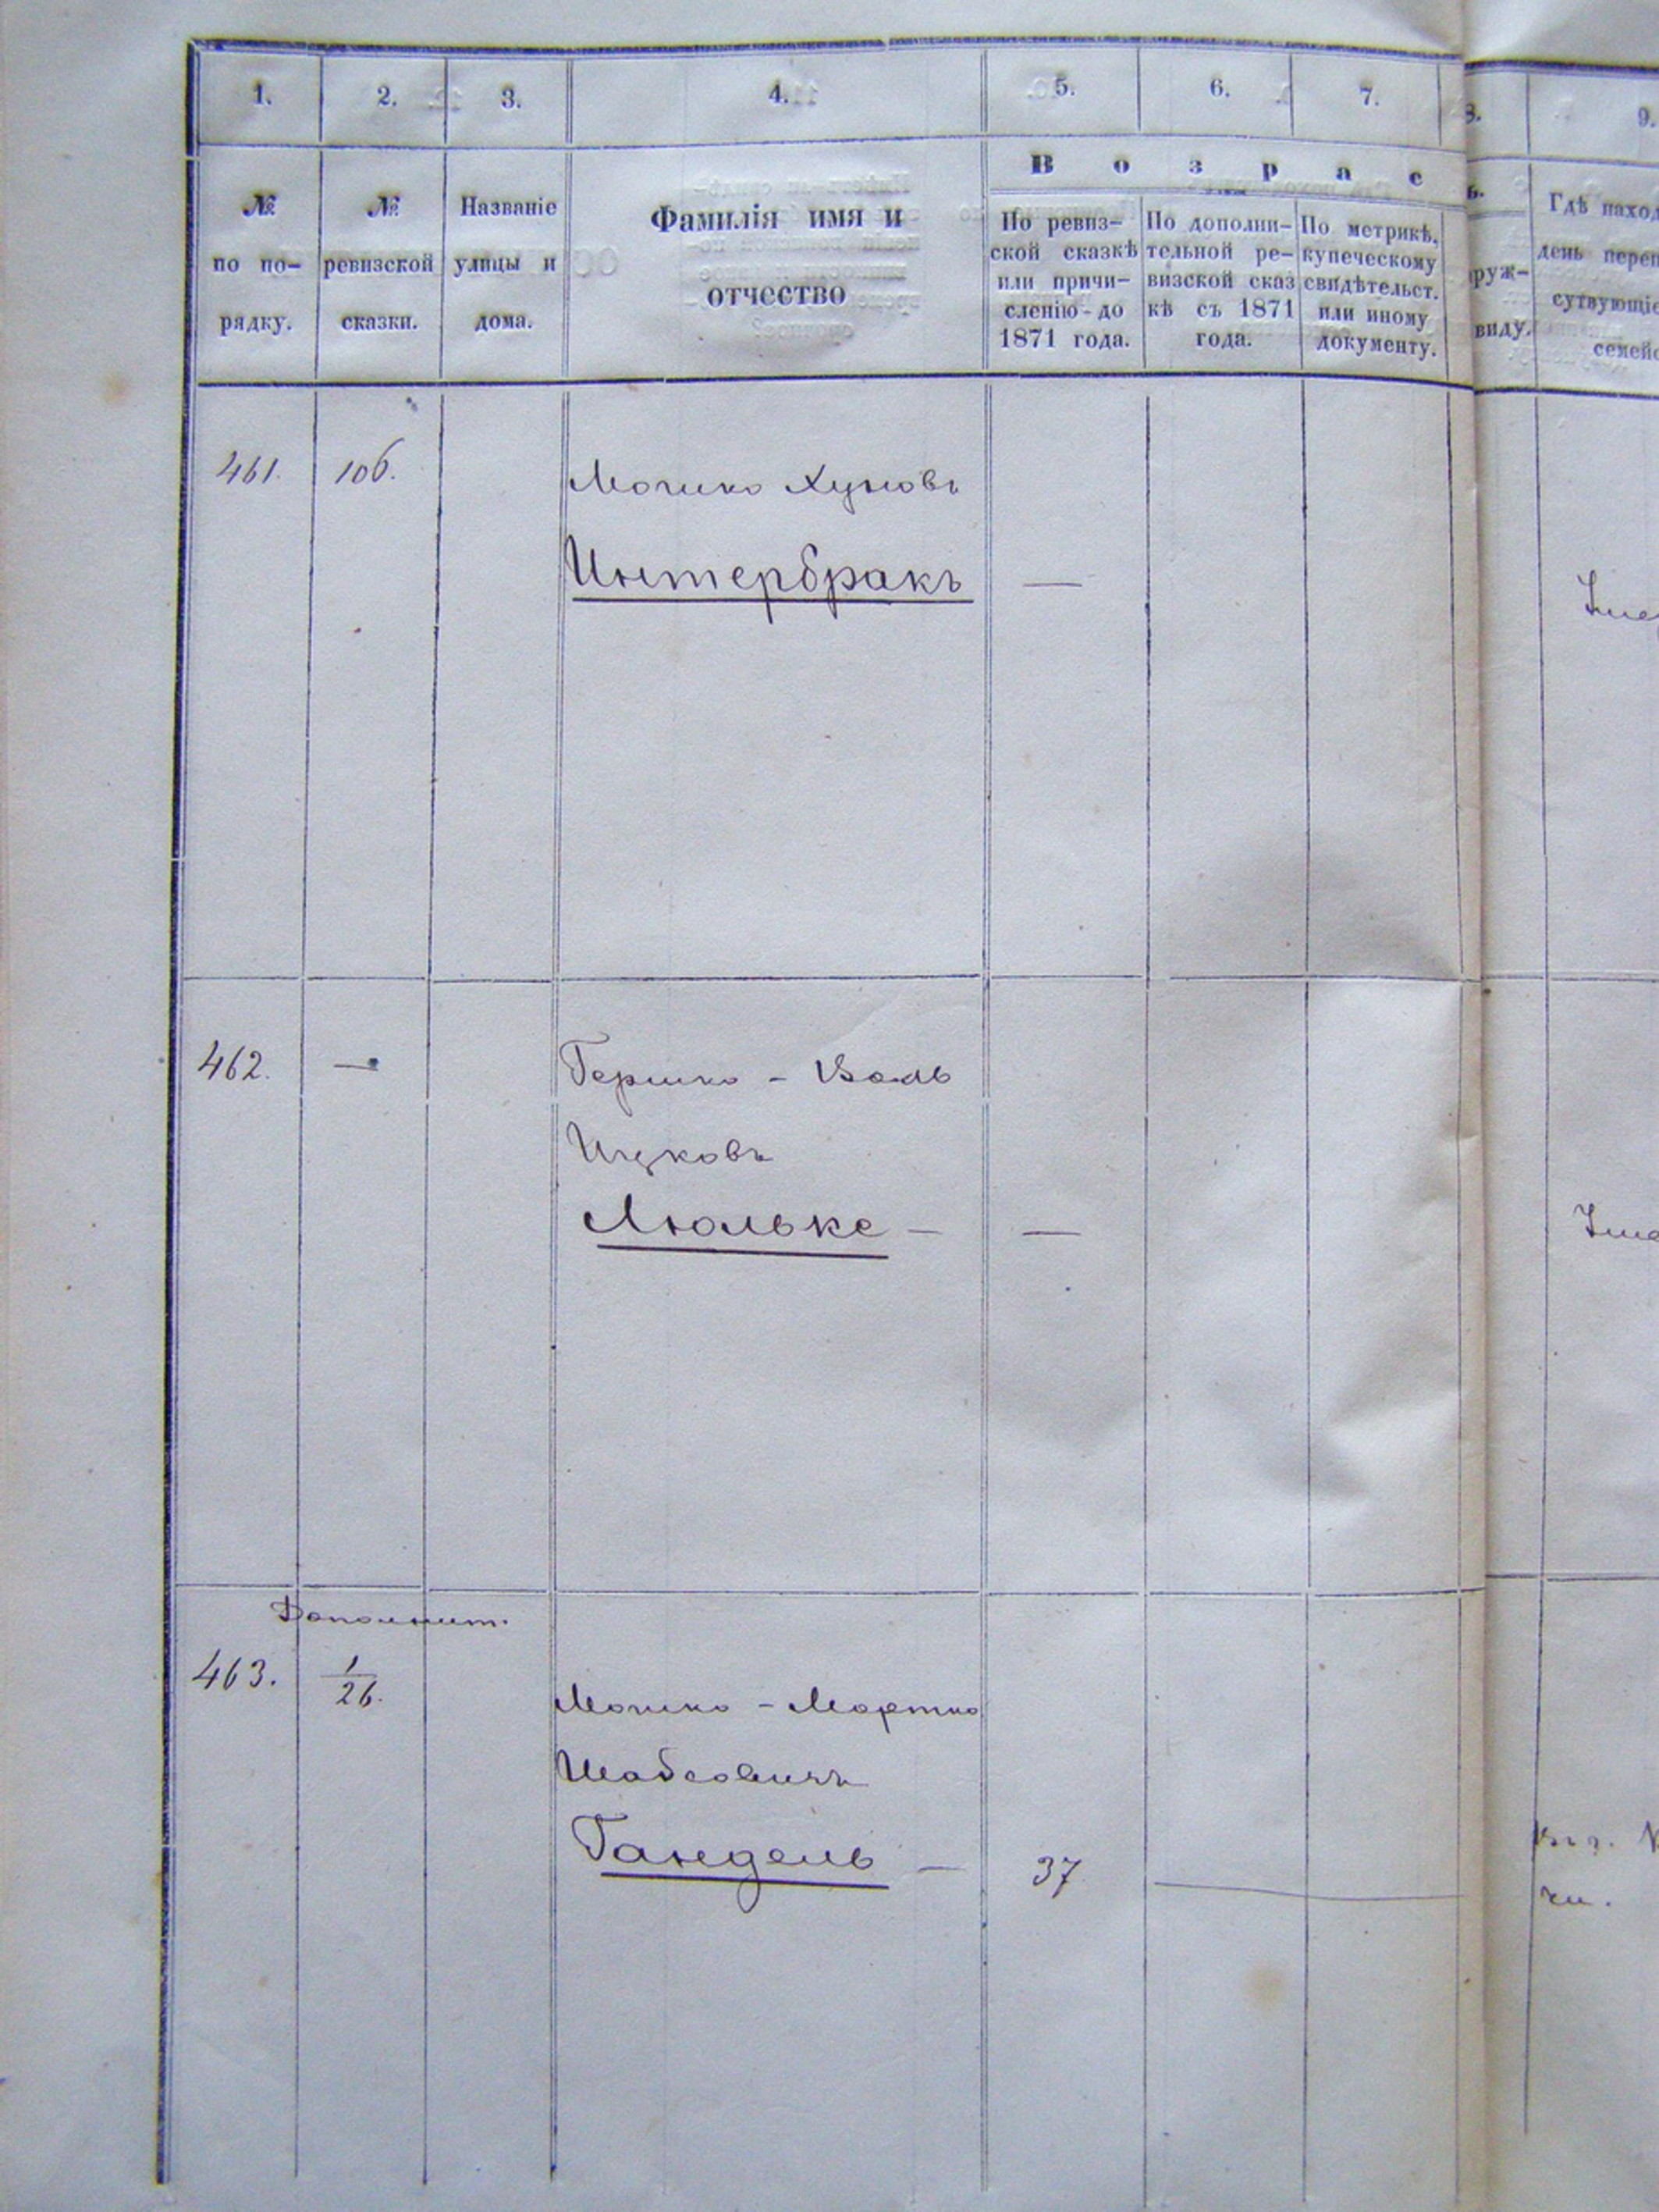 1. 2. 3. 4. 5. 6. 7. 8. 9.
№ по порядку.
№ ревизской сказки.
Названіе улицы и дома.
Фамилія имя и
отчество
В о з р а с
По ревиз-
ской сказкѣ
или причи-
сленію до
1871 года.
По дополни-
тельной ре-
визской сказ
кѣ съ 1871
года.
По метрикѣ,
купеческому
свидѣтельст.
или иному
документу.
ь.
руж-
виду.
Гдѣ наход
день переп
сутвующіе
семейс
461. 106. Мошко Хуновъ
Интербракъ —
462. — Гершко - Вольѳ
Ицковъ
Люльке — —
Дополнит.
463. 1/26. Мошко - Мортко
Шабсовичъ
Гандель — 37